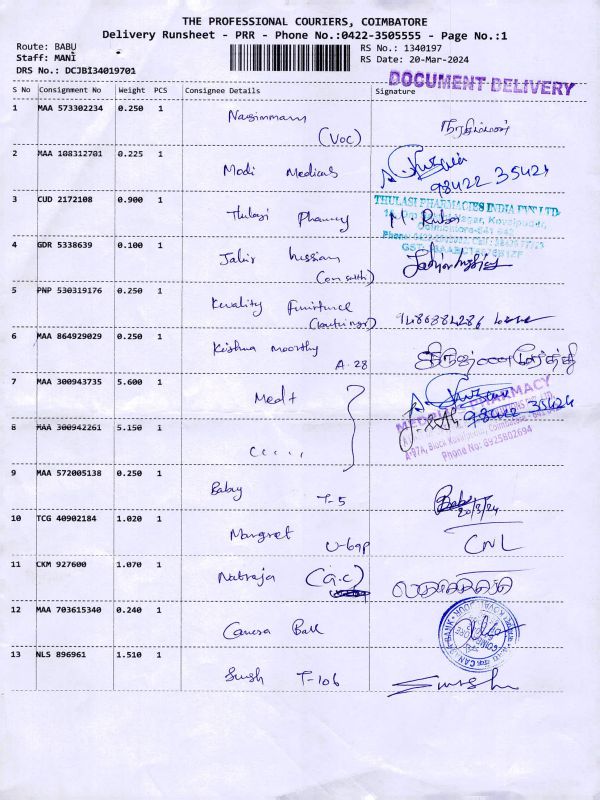 THE PROFESSIONAL COURIERS, COIMBATORE
Delivery Runsheet - PRR - Phone No.:0422-3505555 - Page No.:1
Route: BABU
RS No.: 1340197
Staff: MANI
RS Date: 20-Mar-2024
DRS No.: DCJBI34019701
DOCUMENT DELIVERY
S No Consignment No Weight PCS Consignee Details Signature
1 MAA 573302234 0.250 1
(VOC)
2 MAA 108312701 0.225 1 Modi Medicals
98422 35424
3 CUD 2172108 0.900 1 Thulasi Pharmacy M. Ruba
THULASI PHARMACIES INDIA PVT LTD
4 GDR 5338639 0.100 1 Jabir Hussian
5 PNP 530319176 0.250 1 Kwality Furniture
6 MAA 864929029 0.250 1 Krishna moorthy
A-28
7 MAA 300943735 5.600 1 Med+
98422 35424
MEDPLUS PHARMACY
8 MAA 300942261 5.150 1
Phone No: 8925802694
9 MAA 572005138 0.250 1 Babu T-5 Babu
20/3/24
10 TCG 40902184 1.020 1 Margret U-69P CNL
11 CKM 927600 1.070 1 Natraja (G.C)
12 MAA 703615340 0.240 1 Canera Bank
13 NLS 896961 1.510 1 Sursh T-106 Sursh